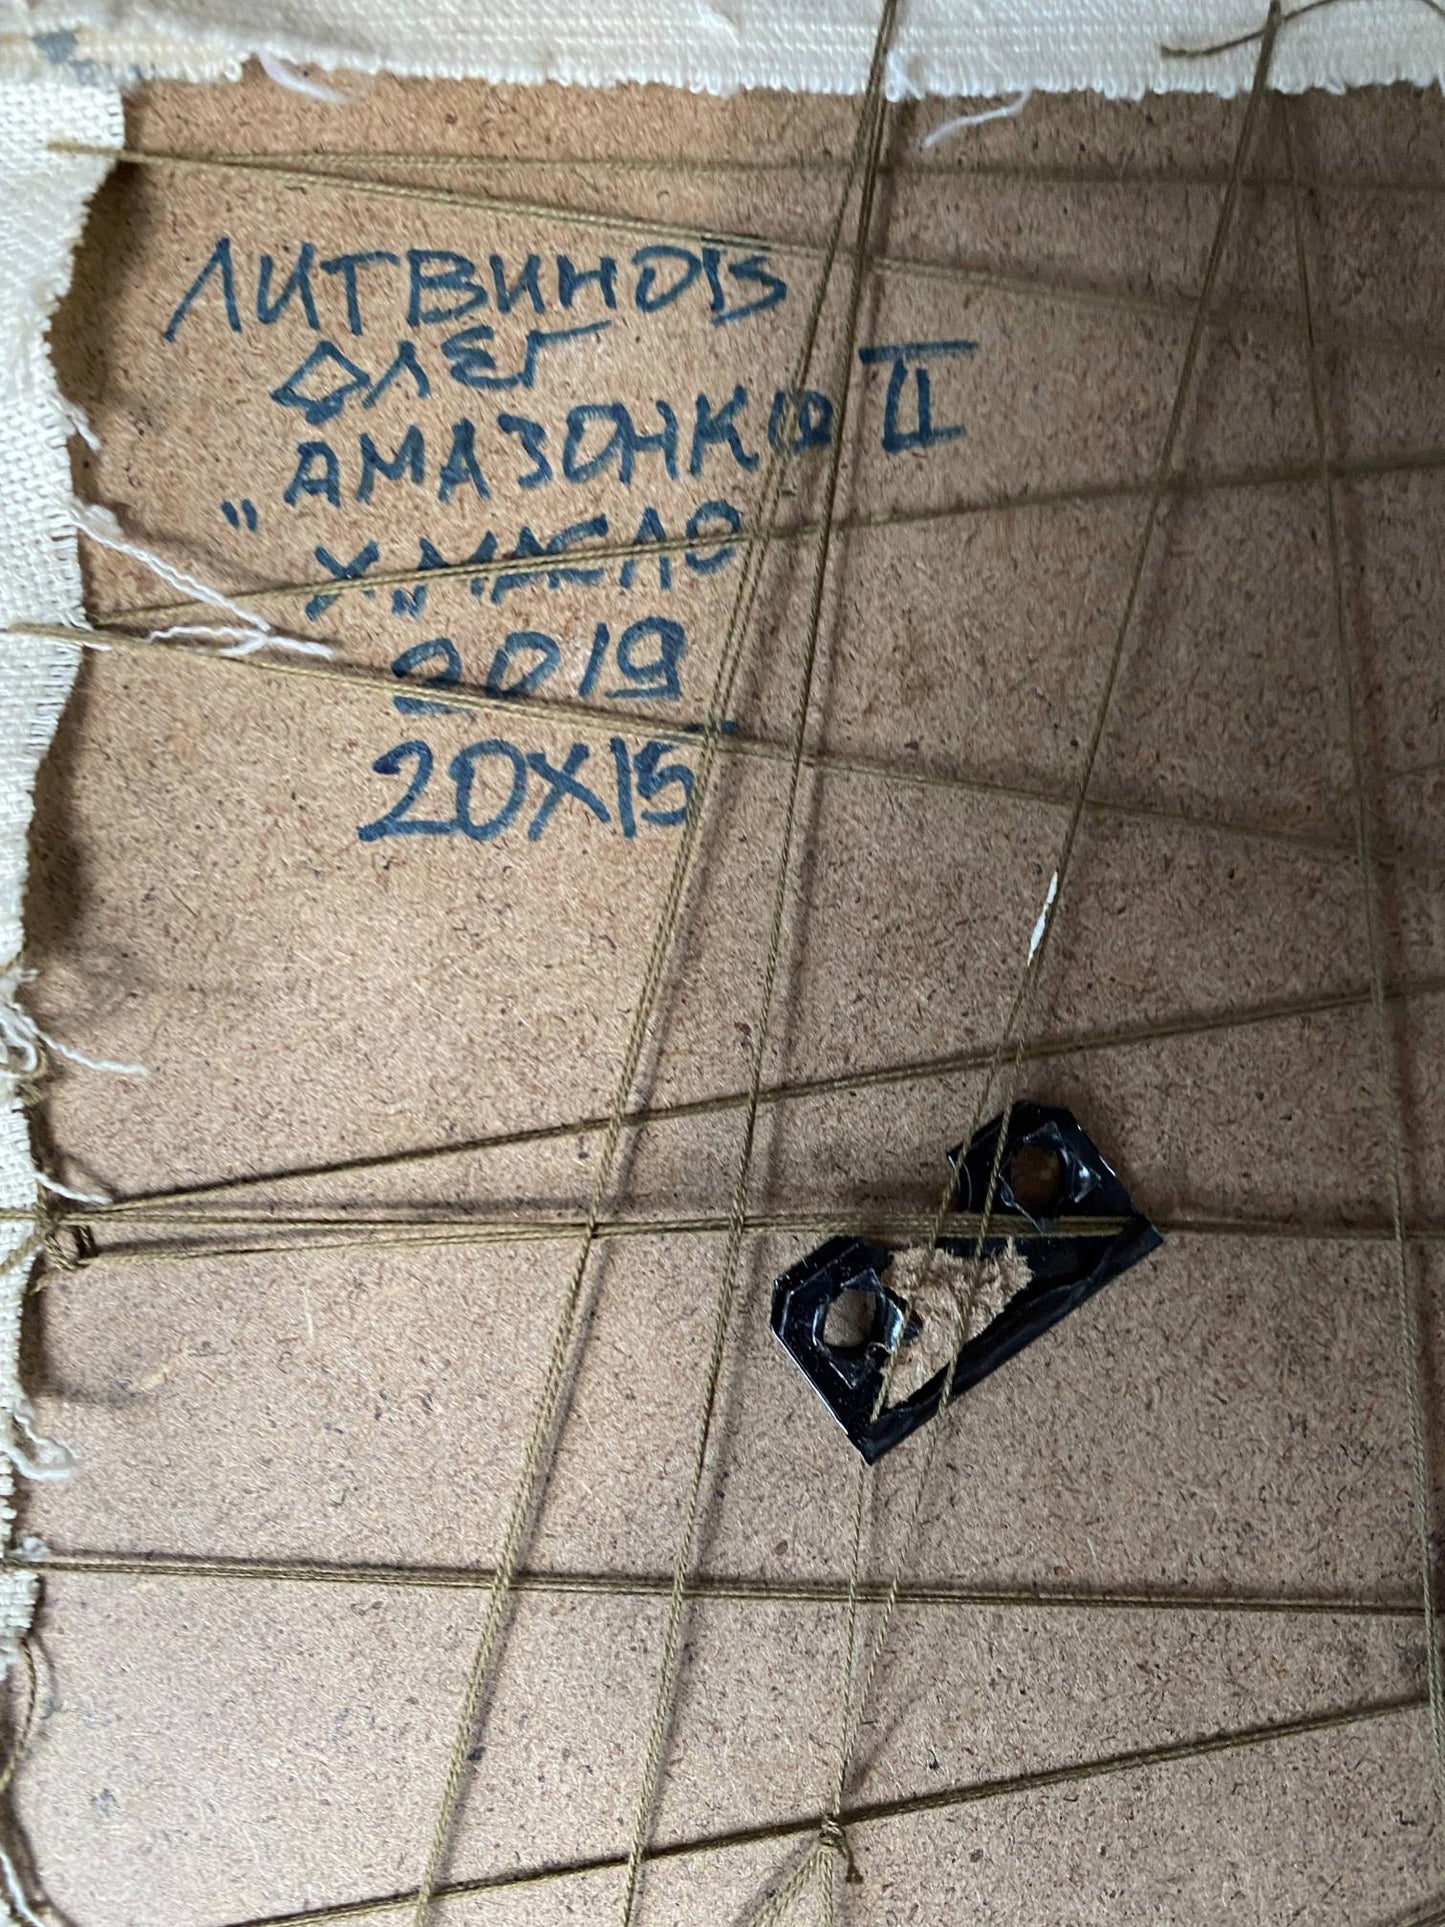 ЛИТВИНОВ
ОЛЕГ
"АМАЗОНКА II
Х,МАСЛО
2019
20X15